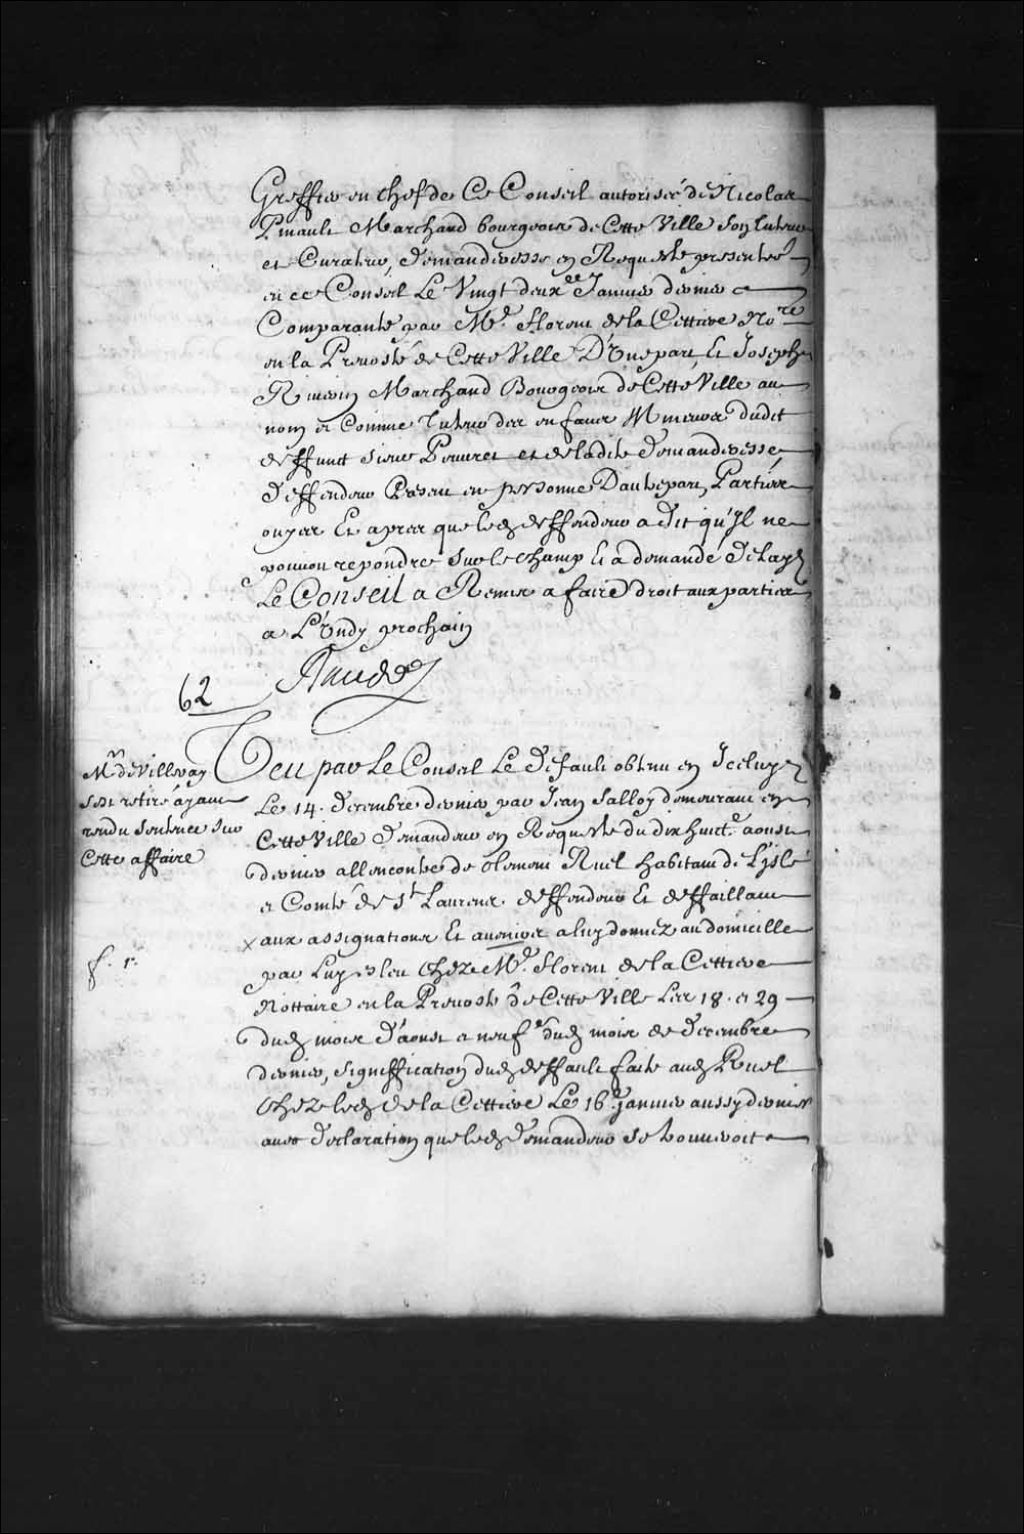 Greffier en chef de Ce Conseil autorisée de Nicolas
Pinault Marchand bourgeois de Cette Ville Son tuteur
et Curateur, demanderesse en Requeste presentée
en ce Conseil Le Vingt deux.e Janvier dernier
Comparante par M.e florent de la Cettiere No.re
en la Prevosté de Cette Ville D'Une part Et Joseph
Riverin Marchand Bourgeois de Cette Ville au
nom et Comme Tuteur des enfans Mineurs dudit
deffunt Sieur Peuvret et de ladite demanderesse
deffendeur Present en personne Dautrepart, Parties
ouyes Et apres que led deffendeur a dit qu'Jl ne
pouvoit repondre sur le champ Et a demandé delay
Le Conseil a Remis a faire droit aux parties
a L'Undy prochain
Raudot
62
M.r de Villeray
sest retiré ayant
rendu sentence sur
Cette affaire
Veu par Le Conseil Le default obtenu en Jceluy
Le 14. decembre dernier par Jean Salloy demeurant en
Cette Ville demandeur en Requeste du dix huit.e aoust
dernier allencontre de Clement Ruel habitant de L'isle
et Comté de S.t Laurens deffendeur Et deffaillant
x aux assignations Et avenirs a luy donnéz au domicille
f. r.
par Luy eleu Chéz M.e florent de la Cettiere
Nottaire en la Prevosté de Cette Ville Les 18. et 29
dud mois d'aoust et neuf.e dud mois de decembre
dernier, Signiffication dud deffault faite aud Ruel
Chéz led de la Cettiere Le 16.e janvier aussy dernier
avec declaration que led demandeur se trouveroit